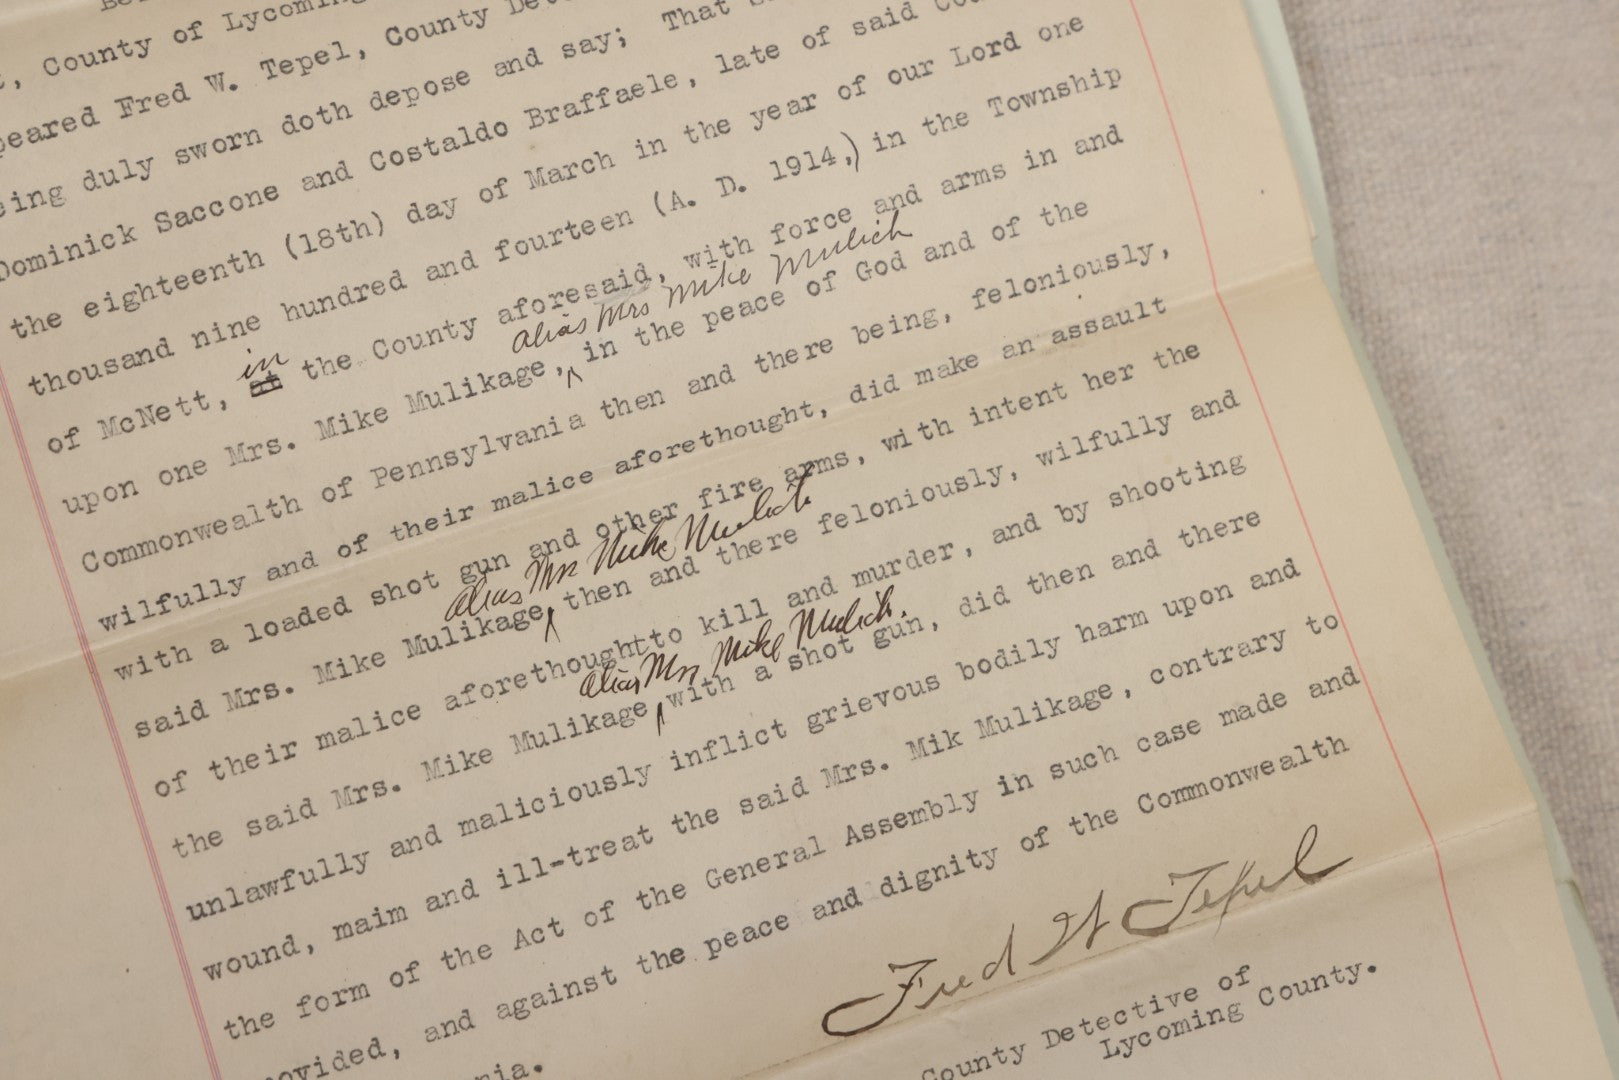 County of Lycoming
peared Fred W. Tepel, County
eing duly sworn doth depose and say; That
Dominick Saccone and Costaldo Braffaele, late of said
the eighteenth (18th) day of March in the year of our Lord one
thousand nine hundred and fourteen (A. D. 1914,) in the Township
in
of McNett, at the County aforesaid, with force and arms in and
alias Mrs Mike Mulich
upon one Mrs. Mike Mulikage, ^ in the peace of God and of the
Commonwealth of Pennsylvania then and there being, feloniously,
wilfully and of their malice aforethought, did make an assault
with a loaded shot gun and other fire arms, with intent her the
alias Mrs Mike Mulich
said Mrs. Mike Mulikage, ^ then and there feloniously, wilfully and
of their malice aforethought to kill and murder, and by shooting
alias Mrs Mike Mulich.
the said Mrs. Mike Mulikage ^ with a shot gun, did then and there
unlawfully and maliciously inflict grievous bodily harm upon and
wound, maim and ill-treat the said Mrs. Mik Mulikage, contrary to
the form of the Act of the General Assembly in such case made and
ovided, and against the peace and dignity of the Commonwealth
nia.
Fred W Tepel
County Detective of
Lycoming County.